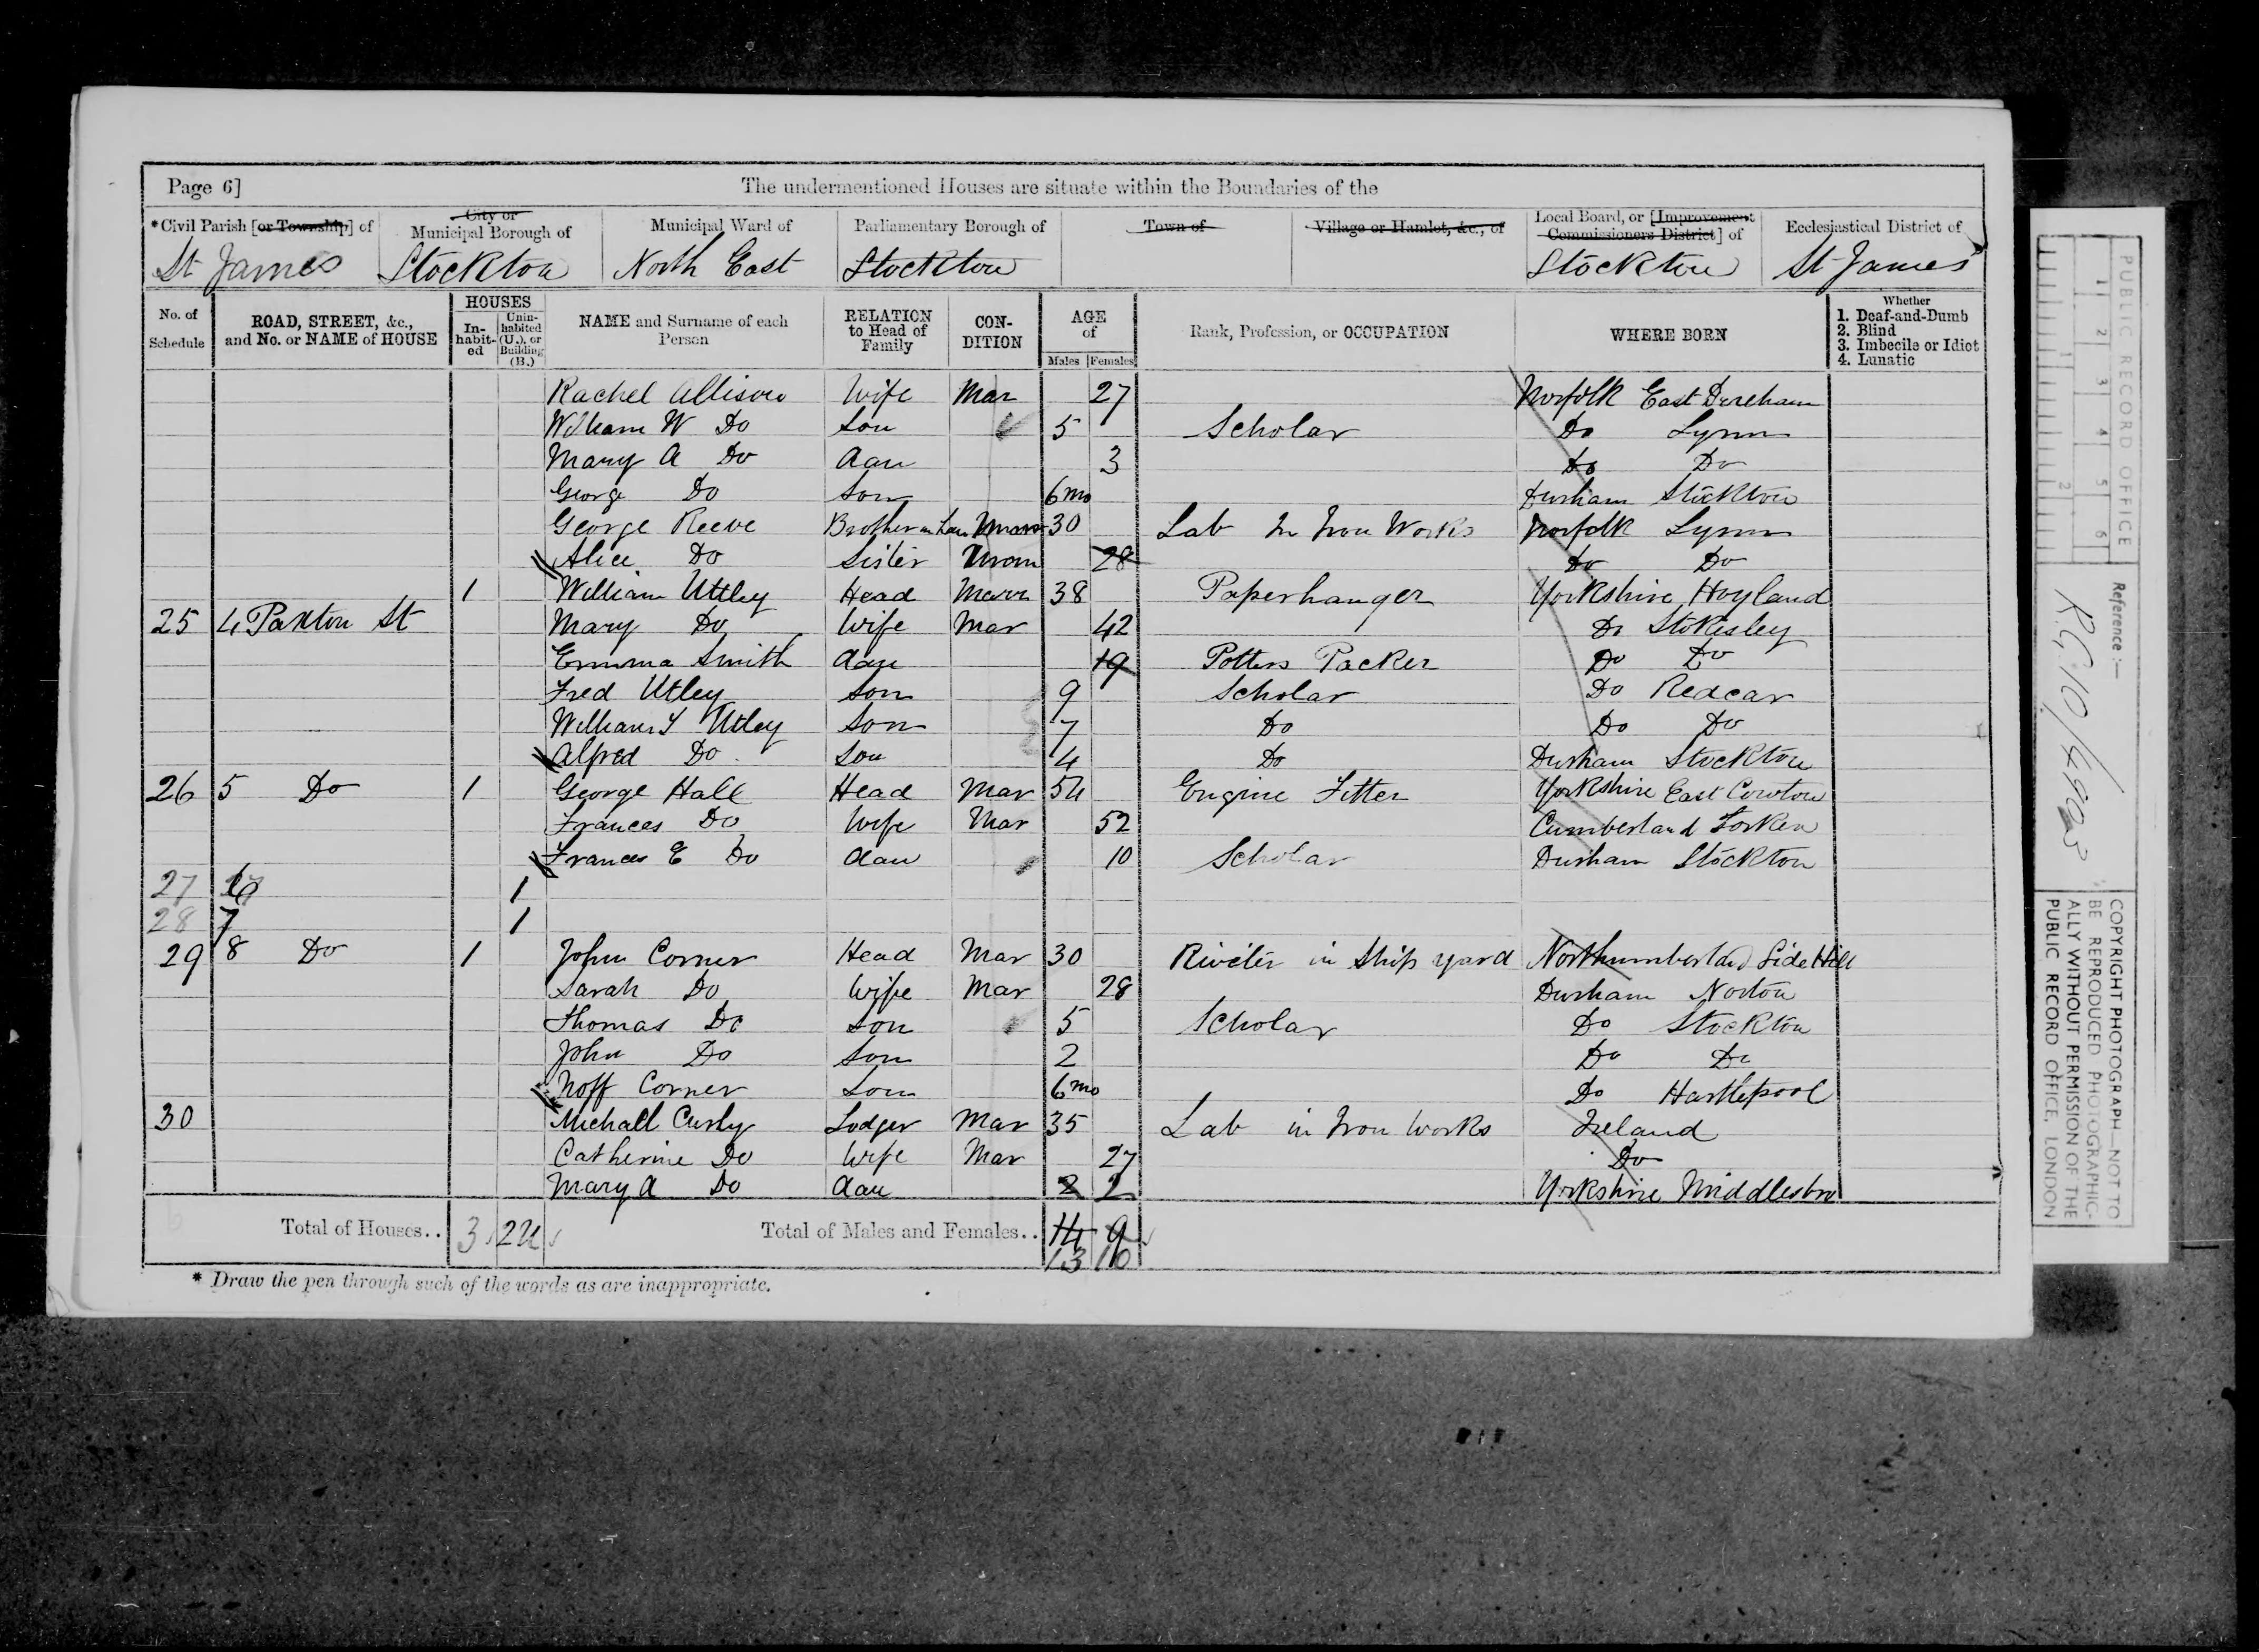 Page 6] The undermentioned Houses are situate within the Boundaries of the
*Civil Parish [or Township] of City or Municipal Borough of Municipal Ward of Parliamentary Borough of Town of Village or Hamlet, &c., of Local Board, or [Improvement Commissioners District] of Ecclesiastical District of
St James Stockton North East Stockton Stockton St James
No. of Schedule ROAD, STREET, &c., and No. or NAME of HOUSE HOUSES Inhabited Uninhabited (U.), or Building (B.) NAME and Surname of each Person RELATION to Head of Family CONDITION AGE of Males Females Rank, Profession, or OCCUPATION WHERE BORN Whether 1. Deaf-and-Dumb 2. Blind 3. Imbecile or Idiot 4. Lunatic
Rachel Allison Wife Mar 27 Norfolk East Dereham
William W Do Son 5 Scholar Do Lynn
Mary A Do Dau 3 Do Do
George Do Son 6mo Durham Stockton
George Reeve Brother in Law Unmar 30 Lab In Iron Works Norfolk Lynn
Alice Do Sister 28 Do Do
1 William Uttley Head Marr 38 Paperhanger Yorkshire Hoyland
25 4 Paxton St Mary Do Wife Mar 42 Do Stokesley
Emma Smith Dau 19 Potters Packer Do Do
Fred Utley Son 9 Scholar Do Redcar
William Utley Son 7 Do Do Do
Alfred Do Son 4 Do Durham Stockton
26 5 Do 1 George Hall Head Mar 54 Engine Fitter Yorkshire East Cowton
Frances Do Wife Mar 52 Cumberland
Frances E Do Dau 10 Scholar Durham Stockton
27 1
28 7 1
29 8 Do 1 John Corner Head Mar 30 Riveter in Ship yard Northumberland Side Hill
Sarah Do Wife Mar 28 Durham Norton
Thomas Do Son 5 Scholar Do Stockton
John Do Son 2 Do Do
Corner Son 6mo Do Hartlepool
30 Michall Curly Lodger Mar 35 Lab in Iron Works Ireland
Catherine Do Wife Mar 27 Do
Mary A Do Dau 2 2 Yorkshire Middlesbro
Total of Houses.. 3 2U Total of Males and Females.. 14 9
13 10
* Draw the pen through such of the words as are inappropriate.
PUBLIC RECORD OFFICE
1 2 3 4 5 6
1 2
Reference :-
COPYRIGHT PHOTOGRAPH—NOT TO
BE REPRODUCED PHOTOGRAPHIC-
ALLY WITHOUT PERMISSION OF THE
PUBLIC RECORD OFFICE, LONDON